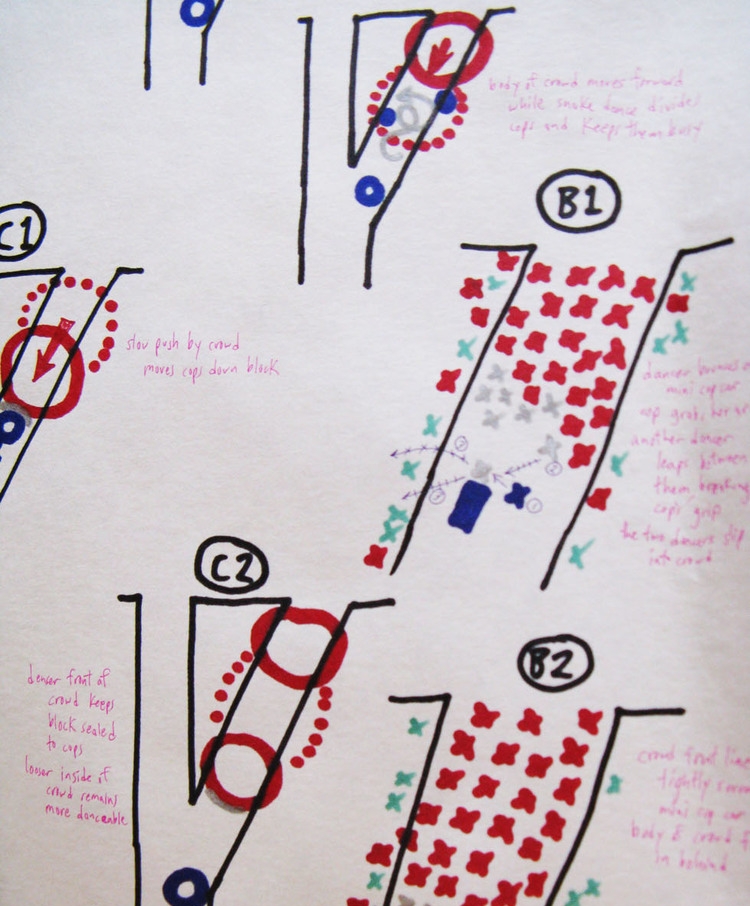 body of crowd moves forward
while snake dance divides
cops and keeps them busy
B1
C1
slow push by crowd
moves cops down block
dancer bounces o
mini cop car
cop grabs her ar
another dancer
leaps between
them, breaking
cop's grip
the two dancers slip
into crowd
2
2
3
1
C2
denser front of
crowd keeps
block sealed
to cops
looser inside of
crowd remains
more danceable
B2
crowd front line
tightly surro
mini cop car
body of crowd f
in behind